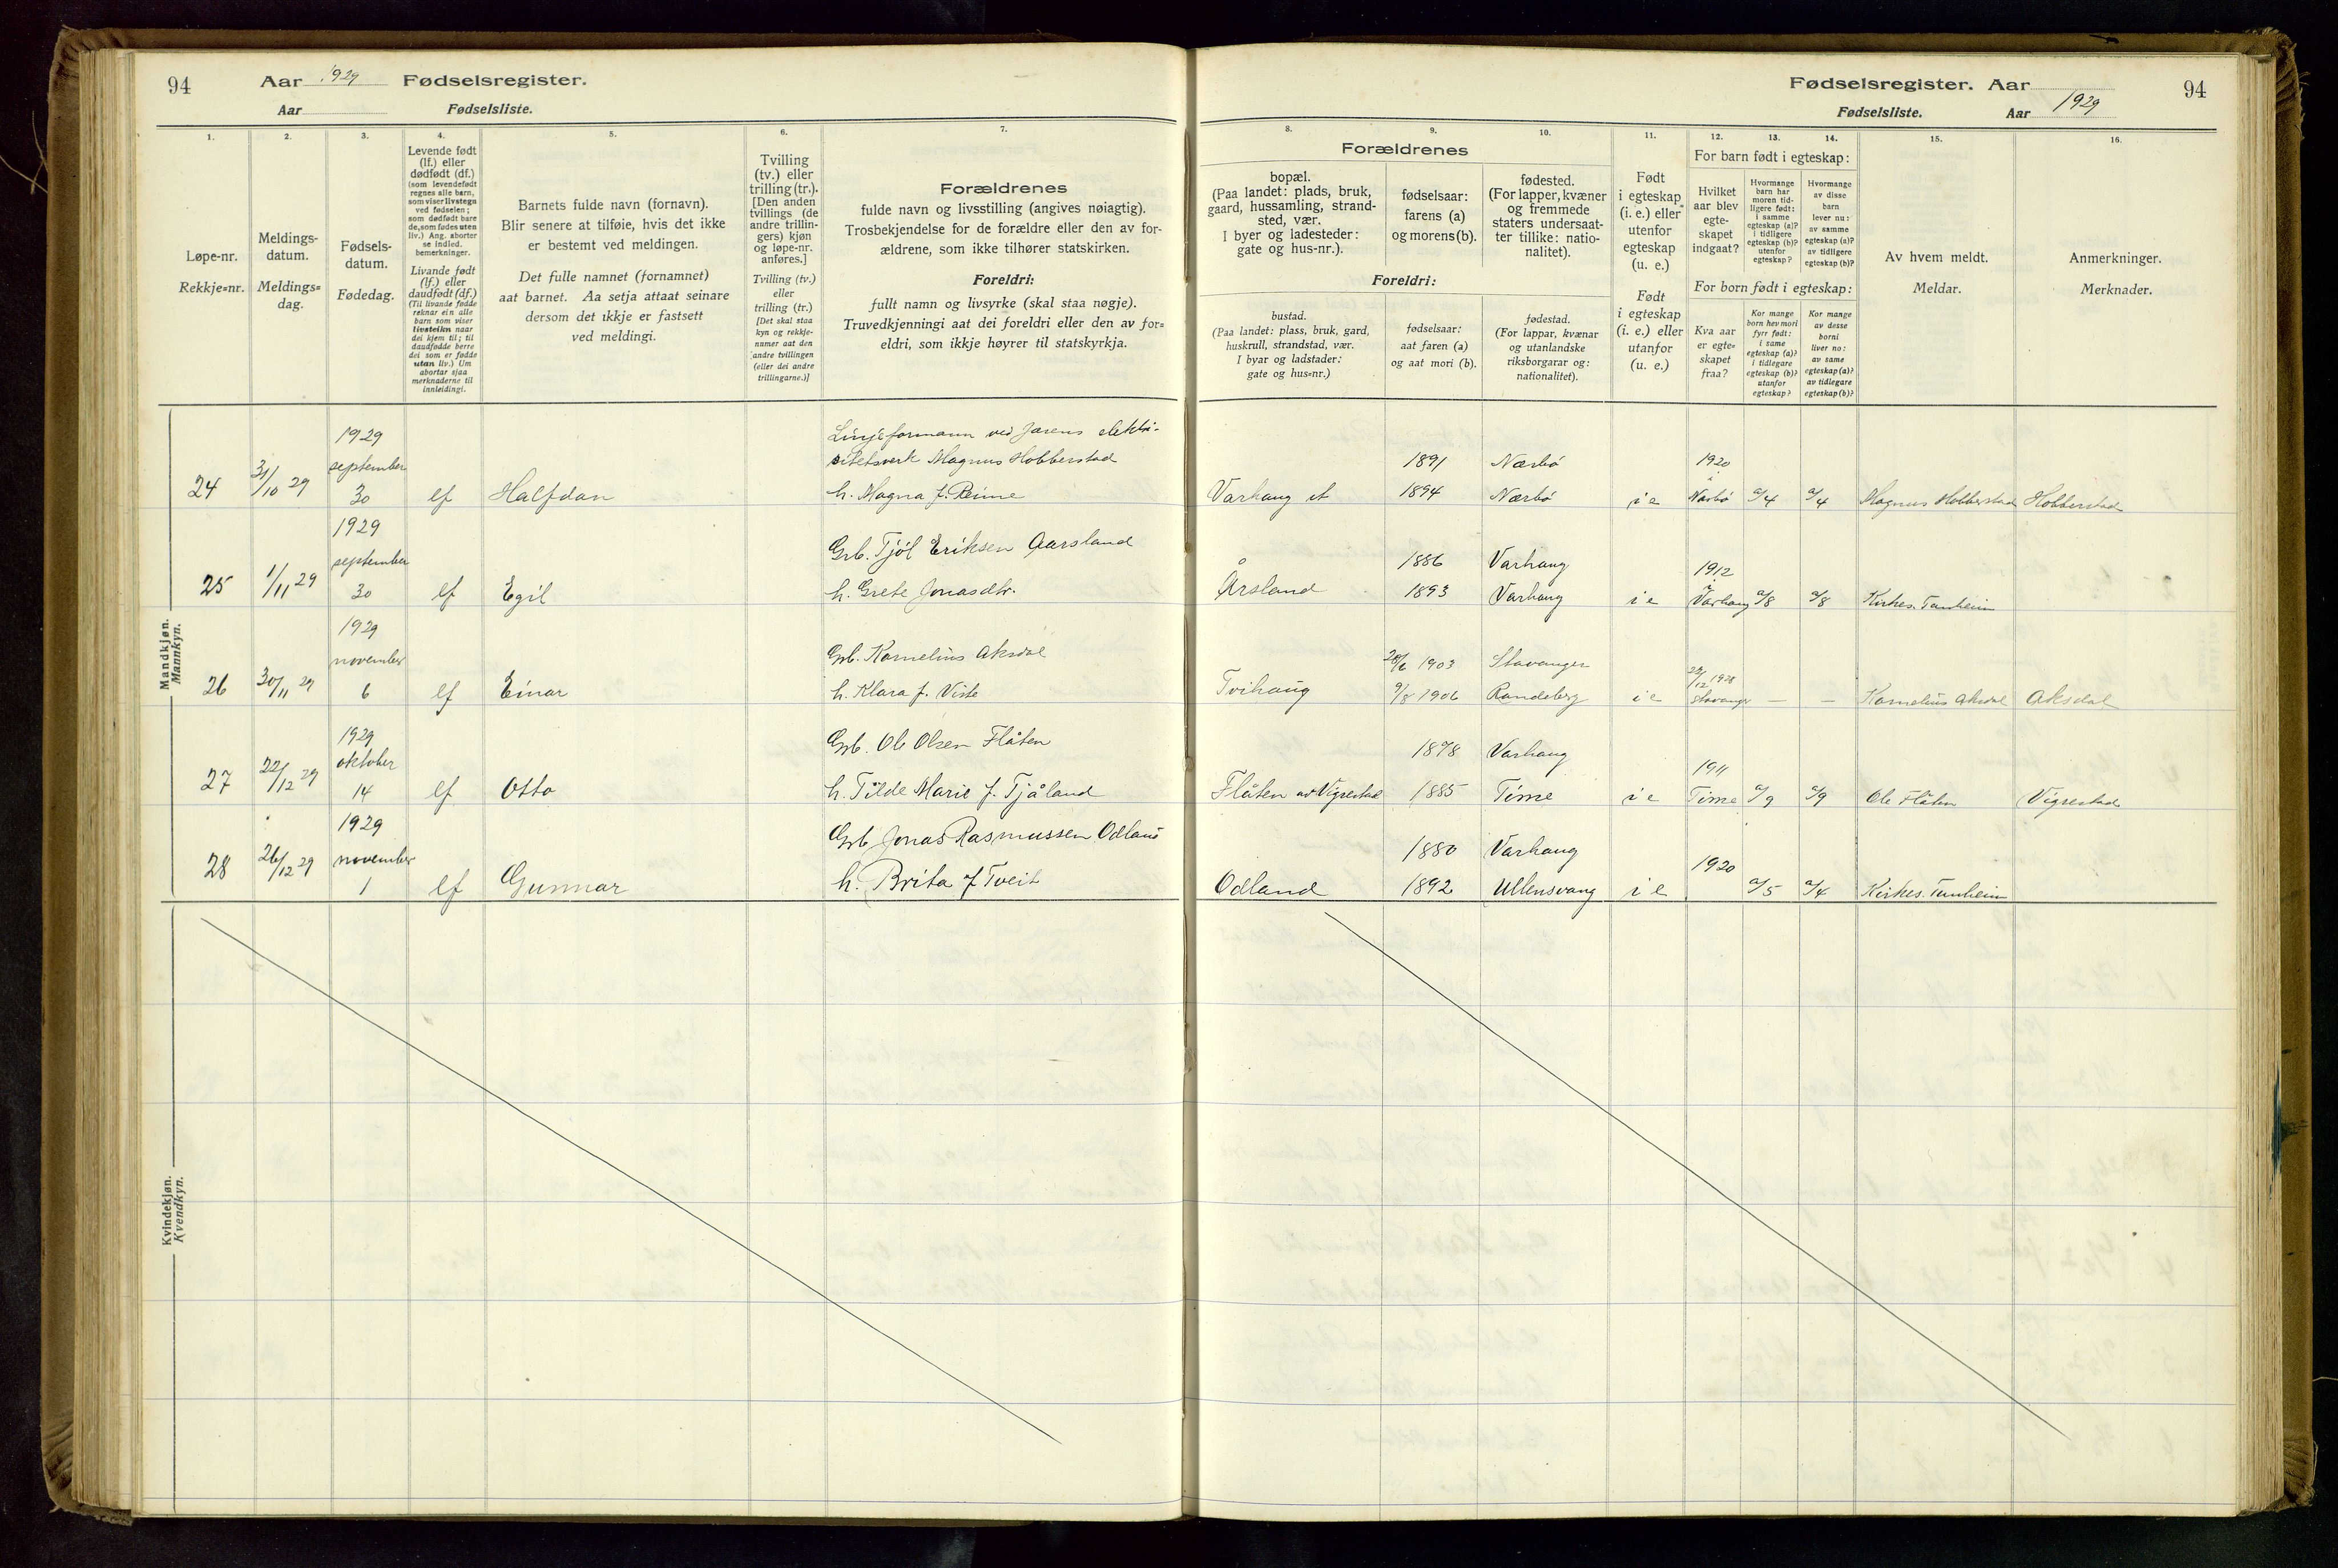 94 Aar 1929 Fødselsregister.
Aar Fødselsliste.
1. 2. 3. 4. 5. 6. 7.
Løpe-nr.
Rekkje=nr.
Meldings-
datum.
Meldings=
dag.
Fødsels-
datum.
Fødedag.
Levende født
(lf.) eller
dødfødt (df.)
(som levendefødt
regnes alle barn,
som viser livstegn
ved fødselen;
som dødfødt bare
de, som fødes uten
liv.) Ang. aborter
se indled.
bemerkninger.
Livande født
(lf.) eller
daudfødt (df.)
(Til livande fødde
reknar ein alle
barn som viser
livsteikn naar
dei kjem til; til
daudfødde berre
dei som er fødde
utan liv.) Um
abortar sjaa
merknaderne til
innleidingi.
Barnets fulde navn (fornavn).
Blir senere at tilføie, hvis det ikke
er bestemt ved meldingen.
Det fulle namnet (fornamnet)
aat barnet. Aa setja attaat seinare
dersom det ikkje er fastsett
ved meldingi.
Tvilling
(tv.) eller
trilling (tr.).
[Den anden
tvillings (de
andre trillin-
gers) kjøn
og løpe-nr.
anføres.]
Tvilling (tv.)
eller
trilling (tr.)
[Det skal staa
kyn og rekkje-
numer aat den
andre tvillingen
(eller dei andre
trillingarne.)]
Forældrenes
fulde navn og livsstilling (angives nøiagtig).
Trosbekjendelse for de forældre eller den av for-
ældrene, som ikke tilhører statskirken.
Foreldri:
fullt namn og livsyrke (skal staa nøgje).
Truvedkjenningi aat dei foreldri eller den av for=
eldri, som ikkje høyrer til statskyrkja.
Mandkjøn.
Mannkyn.
24 31/10 29 1929 september 30 lf Halfdan
Linjeformann ved Jærens elektri-
sitetsverk Magnus Hobberstad
h. Magna f. Reime
25 1/11 29 1929 september 30 lf Egil
Grb. Tjöl Eriksen Aarsland
h. Grete Jonasdtr.
26 30/11 29 1929 november 6 lf Einar
Grb. Kornelius Aksdal
h. Klara f. Viste
27 22/12 29 1929 oktober 14 lf Otto
Grb. Ole Olsen Flåten
h. Tilde Marie f. Tjåland
28 26/12 29 1929 november 1 lf Gunnar
Grb Jonas Rasmussen Odland
h. Brita f Tveit
Kvindekjøn.
Kvendkyn.
Fødselsregister. Aar 94
Fødselsliste. Aar 1929
8. 9. 10. 11. 12. 13. 14. 15. 16.
Forældrenes
bopæl.
(Paa landet: plads, bruk,
gaard, hussamling, strand-
sted, vær.
I byer og ladesteder:
gate og hus-nr.).
fødselsaar:
farens (a)
og morens (b).
fødested.
(For lapper, kvæner
og fremmede
staters undersaat-
ter tillike: natio-
nalitet).
Foreldri:
bustad.
(Paa landet: plass, bruk, gard,
huskrull, strandstad, vær.
I byar og ladstader:
gate og hus=nr.)
fødselsaar:
aat faren (a)
og aat mori (b).
fødestad.
(For lappar, kvænar
og utanlandske
riksborgarar og:
nationalitet).
Født
i egteskap
(i. e.) eller
utenfor
egteskap
(u. e.)
Født
i egteskap
(i. e.) eller
utanfor
(u. e.)
For barn født i egteskap:
Hvilket
aar blev
egte-
skapet
indgaat?
Hvormange
barn har
moren tid-
ligere født:
i samme
egteskap (a)?
i tidligere
egteskap (b)?
utenfor
egteskap?
Hvormange
av disse
barn
lever nu:
av samme
egteskap (a)?
av tidligere
egteskap (b)?
For born født i egteskap:
Kva aar
er egte=
skapet
fraa?
Kor mange
born hev mori
fyrr født:
i same
egteskap (a)?
i tidlegare
egteskap (b)?
utanfor
egteskap?
Kor mange
av desse
borni
liver no:
av same
egteskap (a)?
av tidlegare
egteskap (b)?
Av hvem meldt.
Meldar.
Anmerkninger.
Merknader.
1891 Nærbö 1920 i
Varhaug st 1894 Nærbö i e Nærbö a/4 a/4 Magnus Hobberstad Hobberstad
1886 Varhaug 1912 i
Årsland 1893 Varhaug i e Varhaug a/8 a/8 Kirkes. Tunheim
28/6 1903 Stavanger 22/12 1928
Tvihaug 9/8 1906 Randeberg i e Stavanger — — Kornelius Aksdal Aksdal
1878 Varhaug 1911
Flåten av Vigrestad 1885 Time i e Time a/9 a/9 Ole Flåten Vigrestad
1880 Varhaug 1920
Odland 1892 Ullensvang i e a/5 a/4 Kirkes. Tunheim